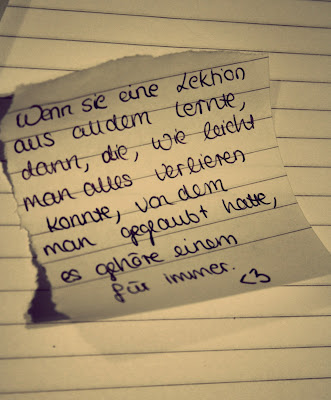 Wenn sie eine Lektion
aus alldem lernte,
dann, die, wie leicht
man alles verlieren
konnte, von dem
man geglaubt hatte,
es gehöre einem
für immer.
<3